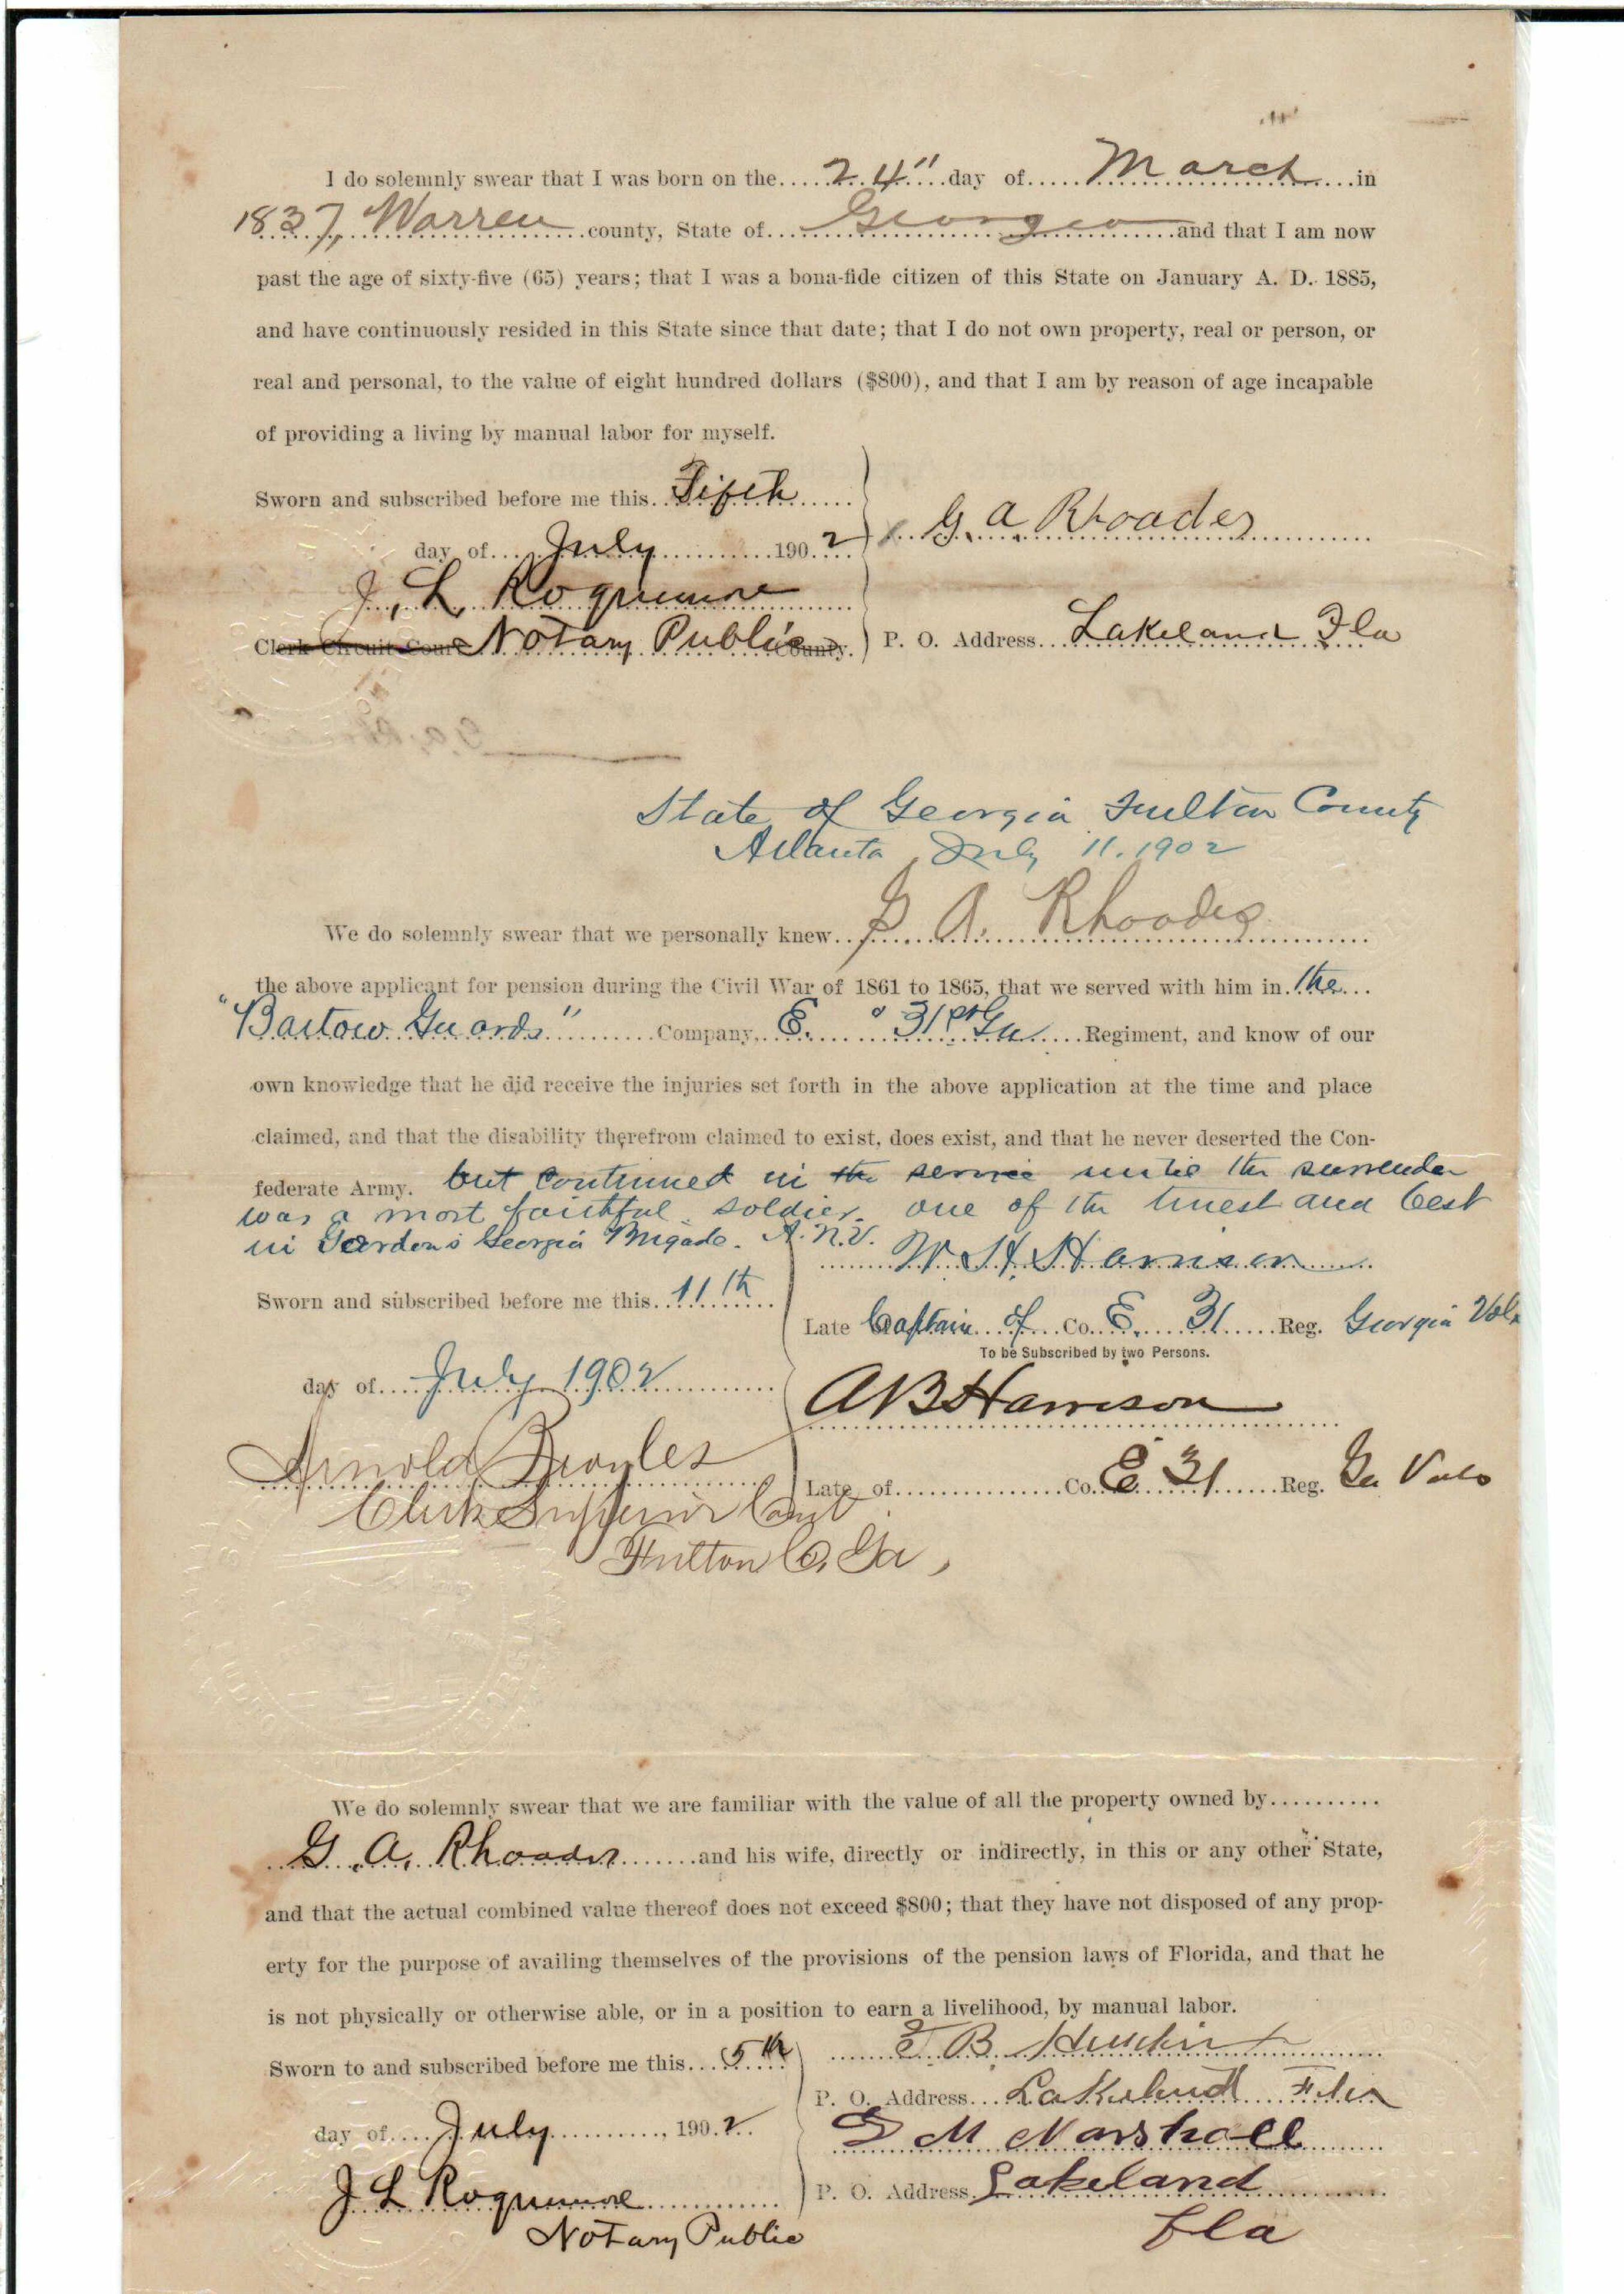 I do solemnly swear that I was born on the 24" day of March in
1837, Warren county, State of Georgia and that I am now
past the age of sixty-five (65) years; that I was a bona-fide citizen of this State on January A. D. 1885,
and have continuously resided in this State since that date; that I do not own property, real or person, or
real and personal, to the value of eight hundred dollars ($800), and that I am by reason of age incapable
of providing a living by manual labor for myself.
Sworn and subscribed before me this Fifth
day of July 1902
G. A Rhoades
J. L. Roquemore
Clerk Circuit Court Notary Public County.
P. O. Address Lakeland Fla
State of Georgia Fulton County
Atlanta, July 11. 1902
We do solemnly swear that we personally knew G. A. Rhoades
the above applicant for pension during the Civil War of 1861 to 1865, that we served with him in the
"Bartow Guards" Company, E. 31st Ga Regiment, and know of our
own knowledge that he did receive the injuries set forth in the above application at the time and place
claimed, and that the disability therefrom claimed to exist, does exist, and that he never deserted the Con-
federate Army. but continued in the service until the surrender
was a most faithful soldier. one of the truest and best
in Gordon's Georgia Brigade. A.N.V.
W. H. Harrison
Sworn and subscribed before me this 11th
Late Captain of Co. E. 31 Reg. Georgia Vols
To be Subscribed by two Persons.
day of July 1902
A B Harrison
Arnold Broyles
Late of Co. E 31 Reg. Ga Vols
Clerk Superior Court
Fulton Co. Ga,
We do solemnly swear that we are familiar with the value of all the property owned by
G. A. Rhoades and his wife, directly or indirectly, in this or any other State,
and that the actual combined value thereof does not exceed $800; that they have not disposed of any prop-
erty for the purpose of availing themselves of the provisions of the pension laws of Florida, and that he
is not physically or otherwise able, or in a position to earn a livelihood, by manual labor.
Sworn to and subscribed before me this 5th
B.
P. O. Address Lakeland Fla
day of July, 1902
M Marshall
J L Roquemore
P. O. Address Lakeland
Notary Public
Fla